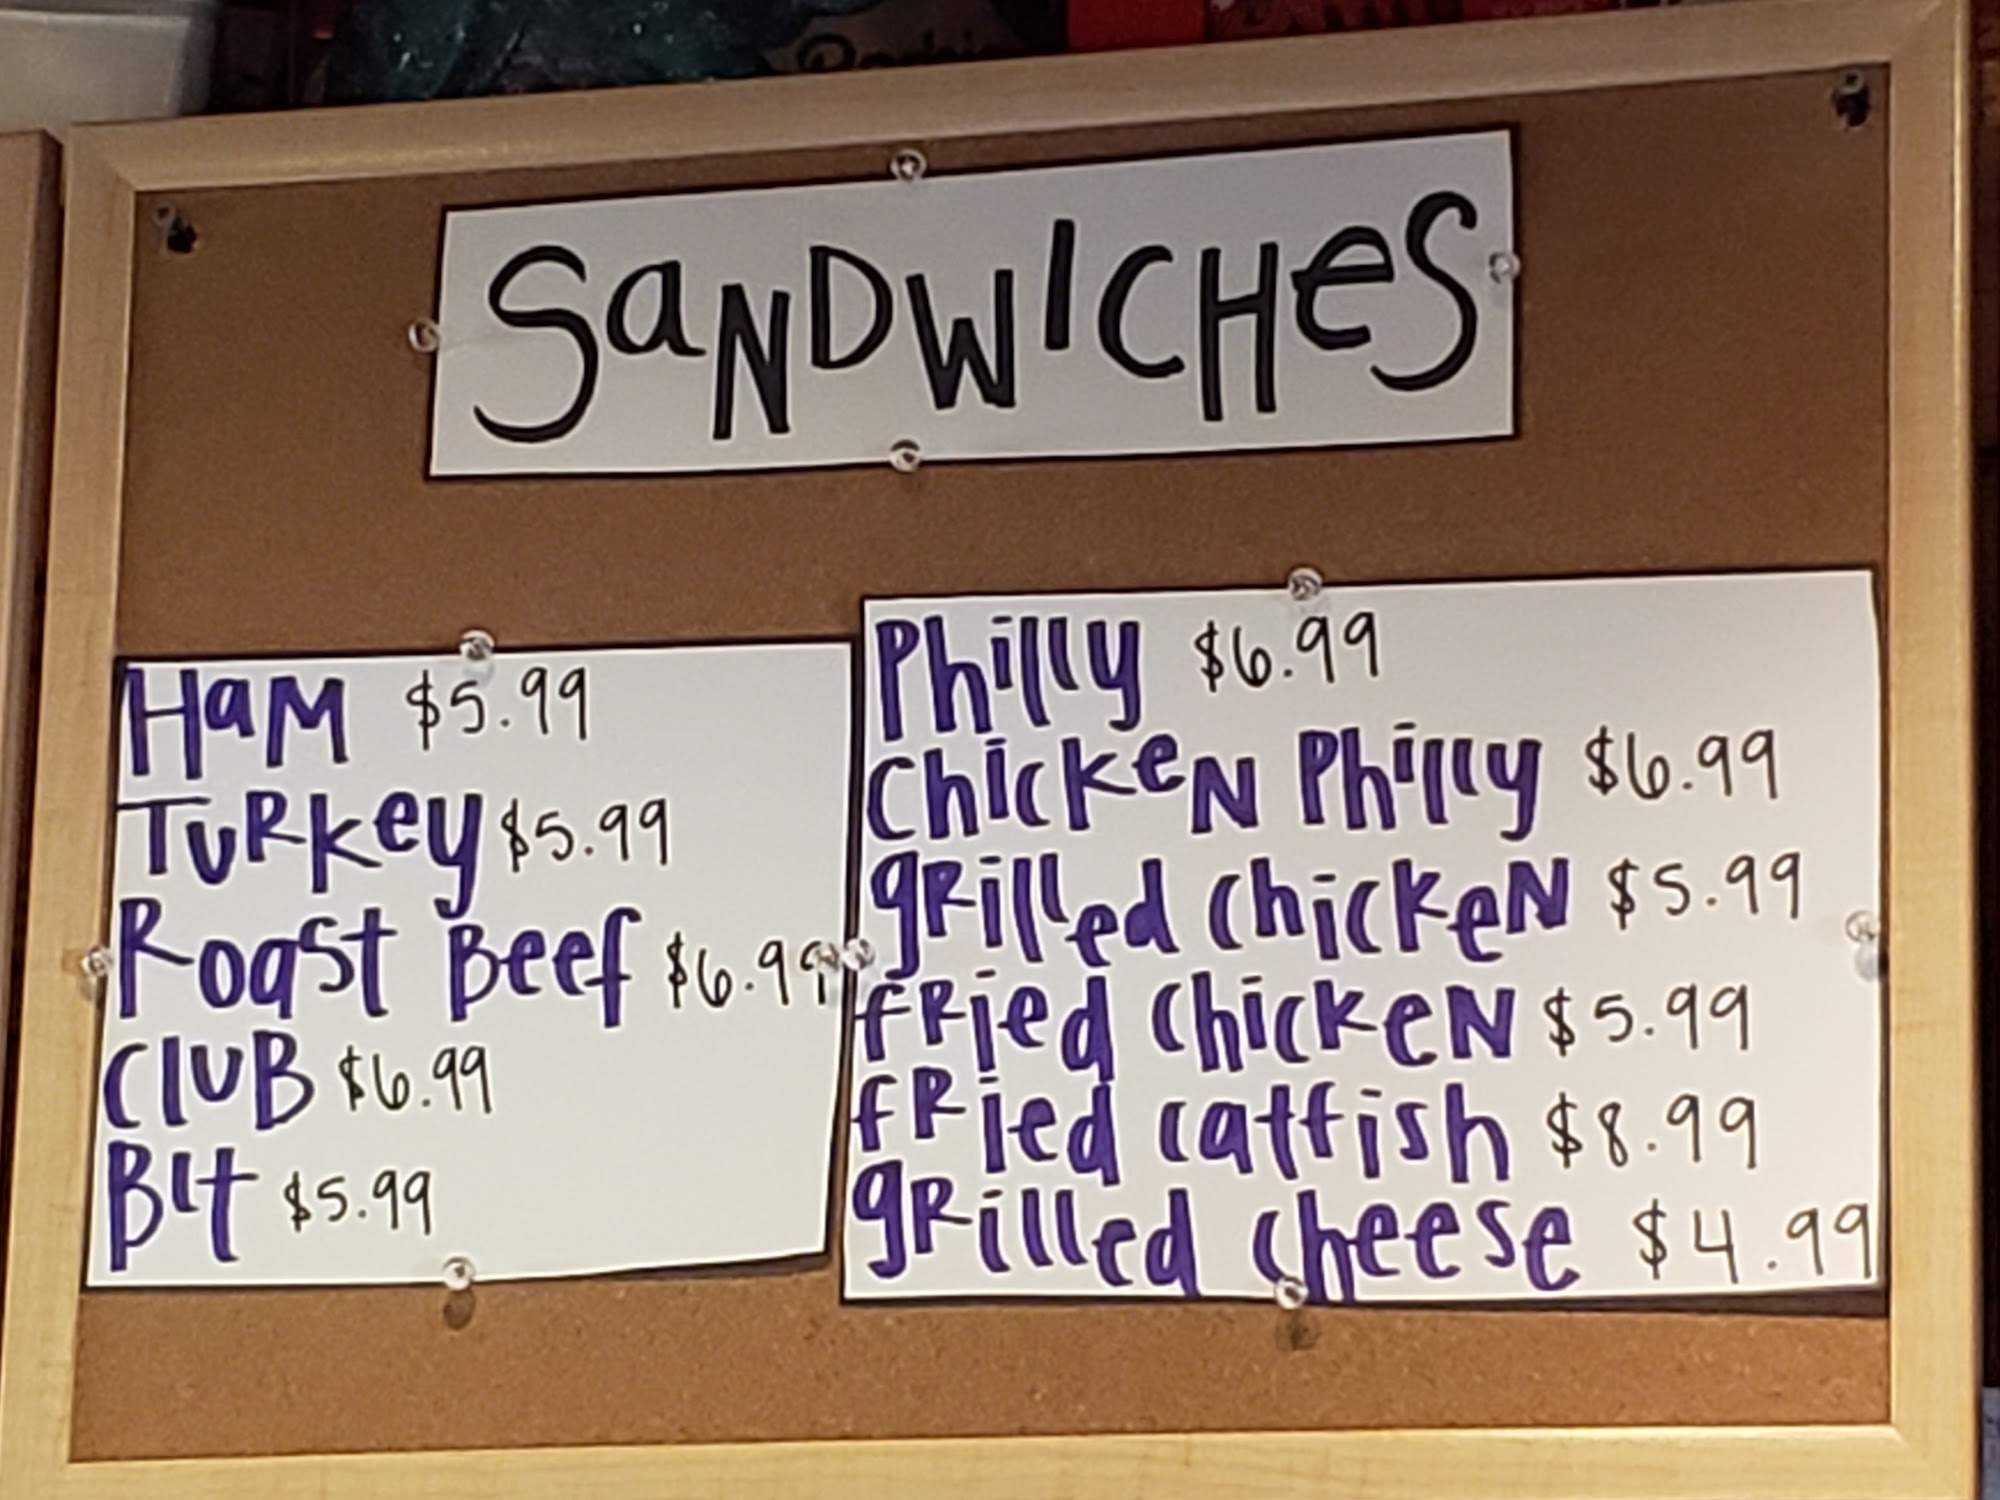 SaNDWICHeS
HaM $5.99
TuRKey $5.99
Roast Beef $6.99
CluB $6.99
Blt $5.99
Philly $6.99
ChickeN Philly $6.99
gRilled chickeN $5.99
fRied chickeN $5.99
fRied catfish $8.99
gRilled cheese $4.99